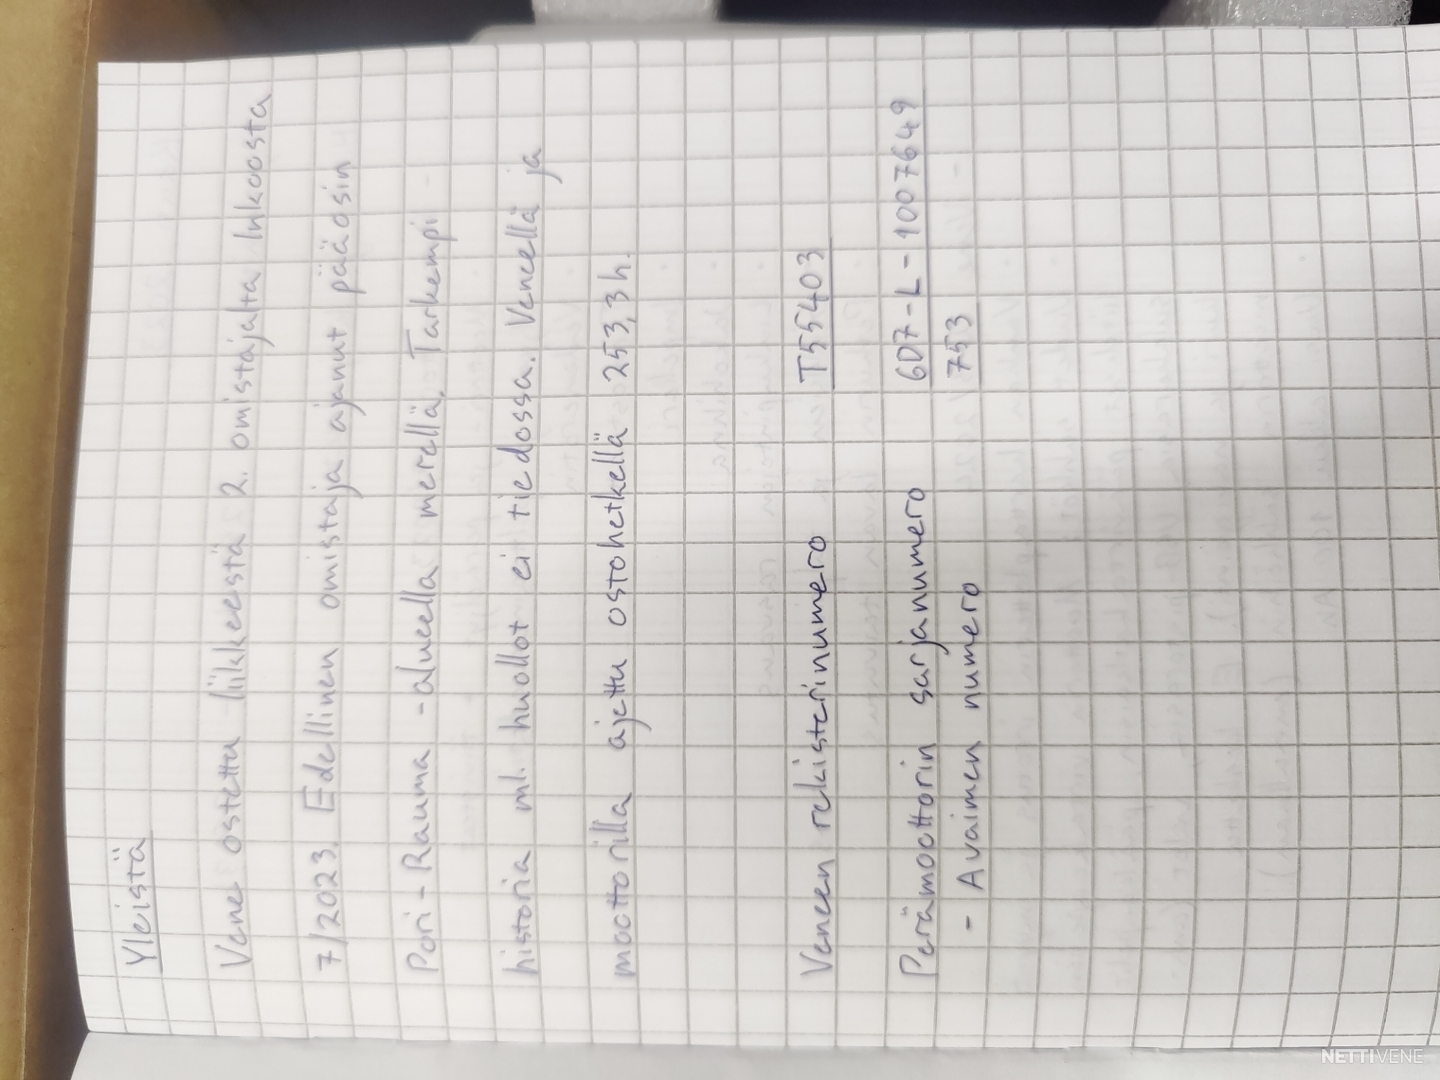 Yleistä
Vene ostettu liikkeestä 2. omistajalta Inkoosta
7/2023. Edellinen omistaja ajanut pääosin
Pori-Rauma -alueella merellä. Tarkempi
historia ml. huollot ei tiedossa. Veneellä ja
moottorilla ajettu ostohetkellä 253,3 h.
Veneen rekisterinumero T55403
Perämoottorin sarjanumero 6D7-L-1007649
- Avaimen numero 753
NETTIVENE